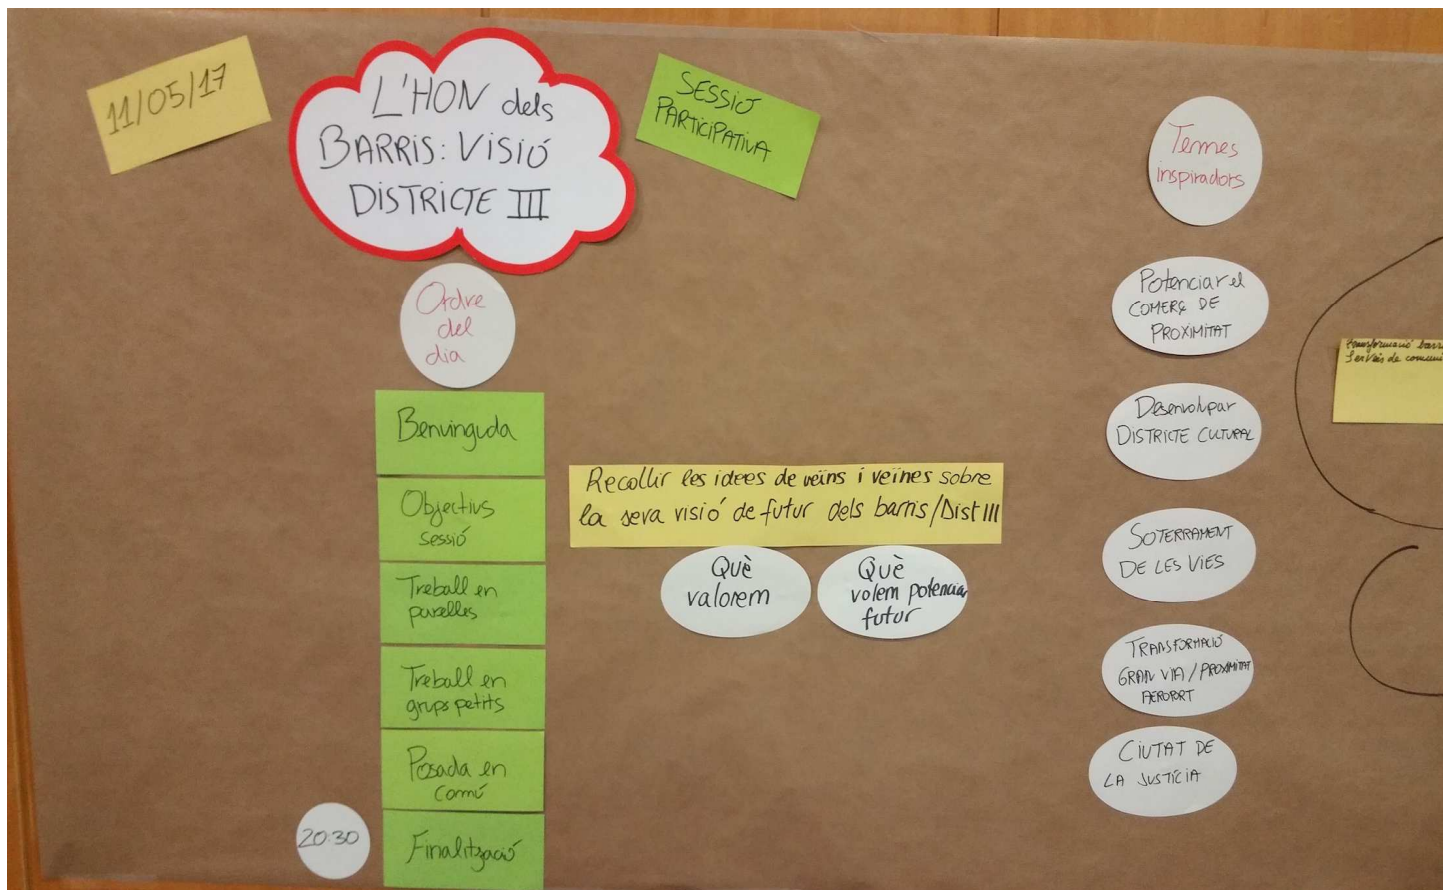 11/05/17
L'HON dels
BARRIS: VISIÓ
DISTRICTE III
SESSIÓ
PARTICIPATIVA
Ordre
del
dia
Benvinguda
Objectius
sessió
Treball en
parelles
Treball en
grups petits
Posada en
comú
20:30
Finalització
Recollir les idees de veïns i veïnes sobre
la seva visió de futur dels barris/Dist III
Què
valorem
Què
volem potenciar
futur
Temes
inspiradors
Potenciar el
COMERÇ DE
PROXIMITAT
Desenvolupar
DISTRICTE CULTURAL
SOTERRAMENT
DE LES VIES
TRANSFORMACIÓ
GRAN VIA / PROXIMITAT
AEROPORT
CIUTAT DE
LA JUSTÍCIA
Transformació
Serveis de